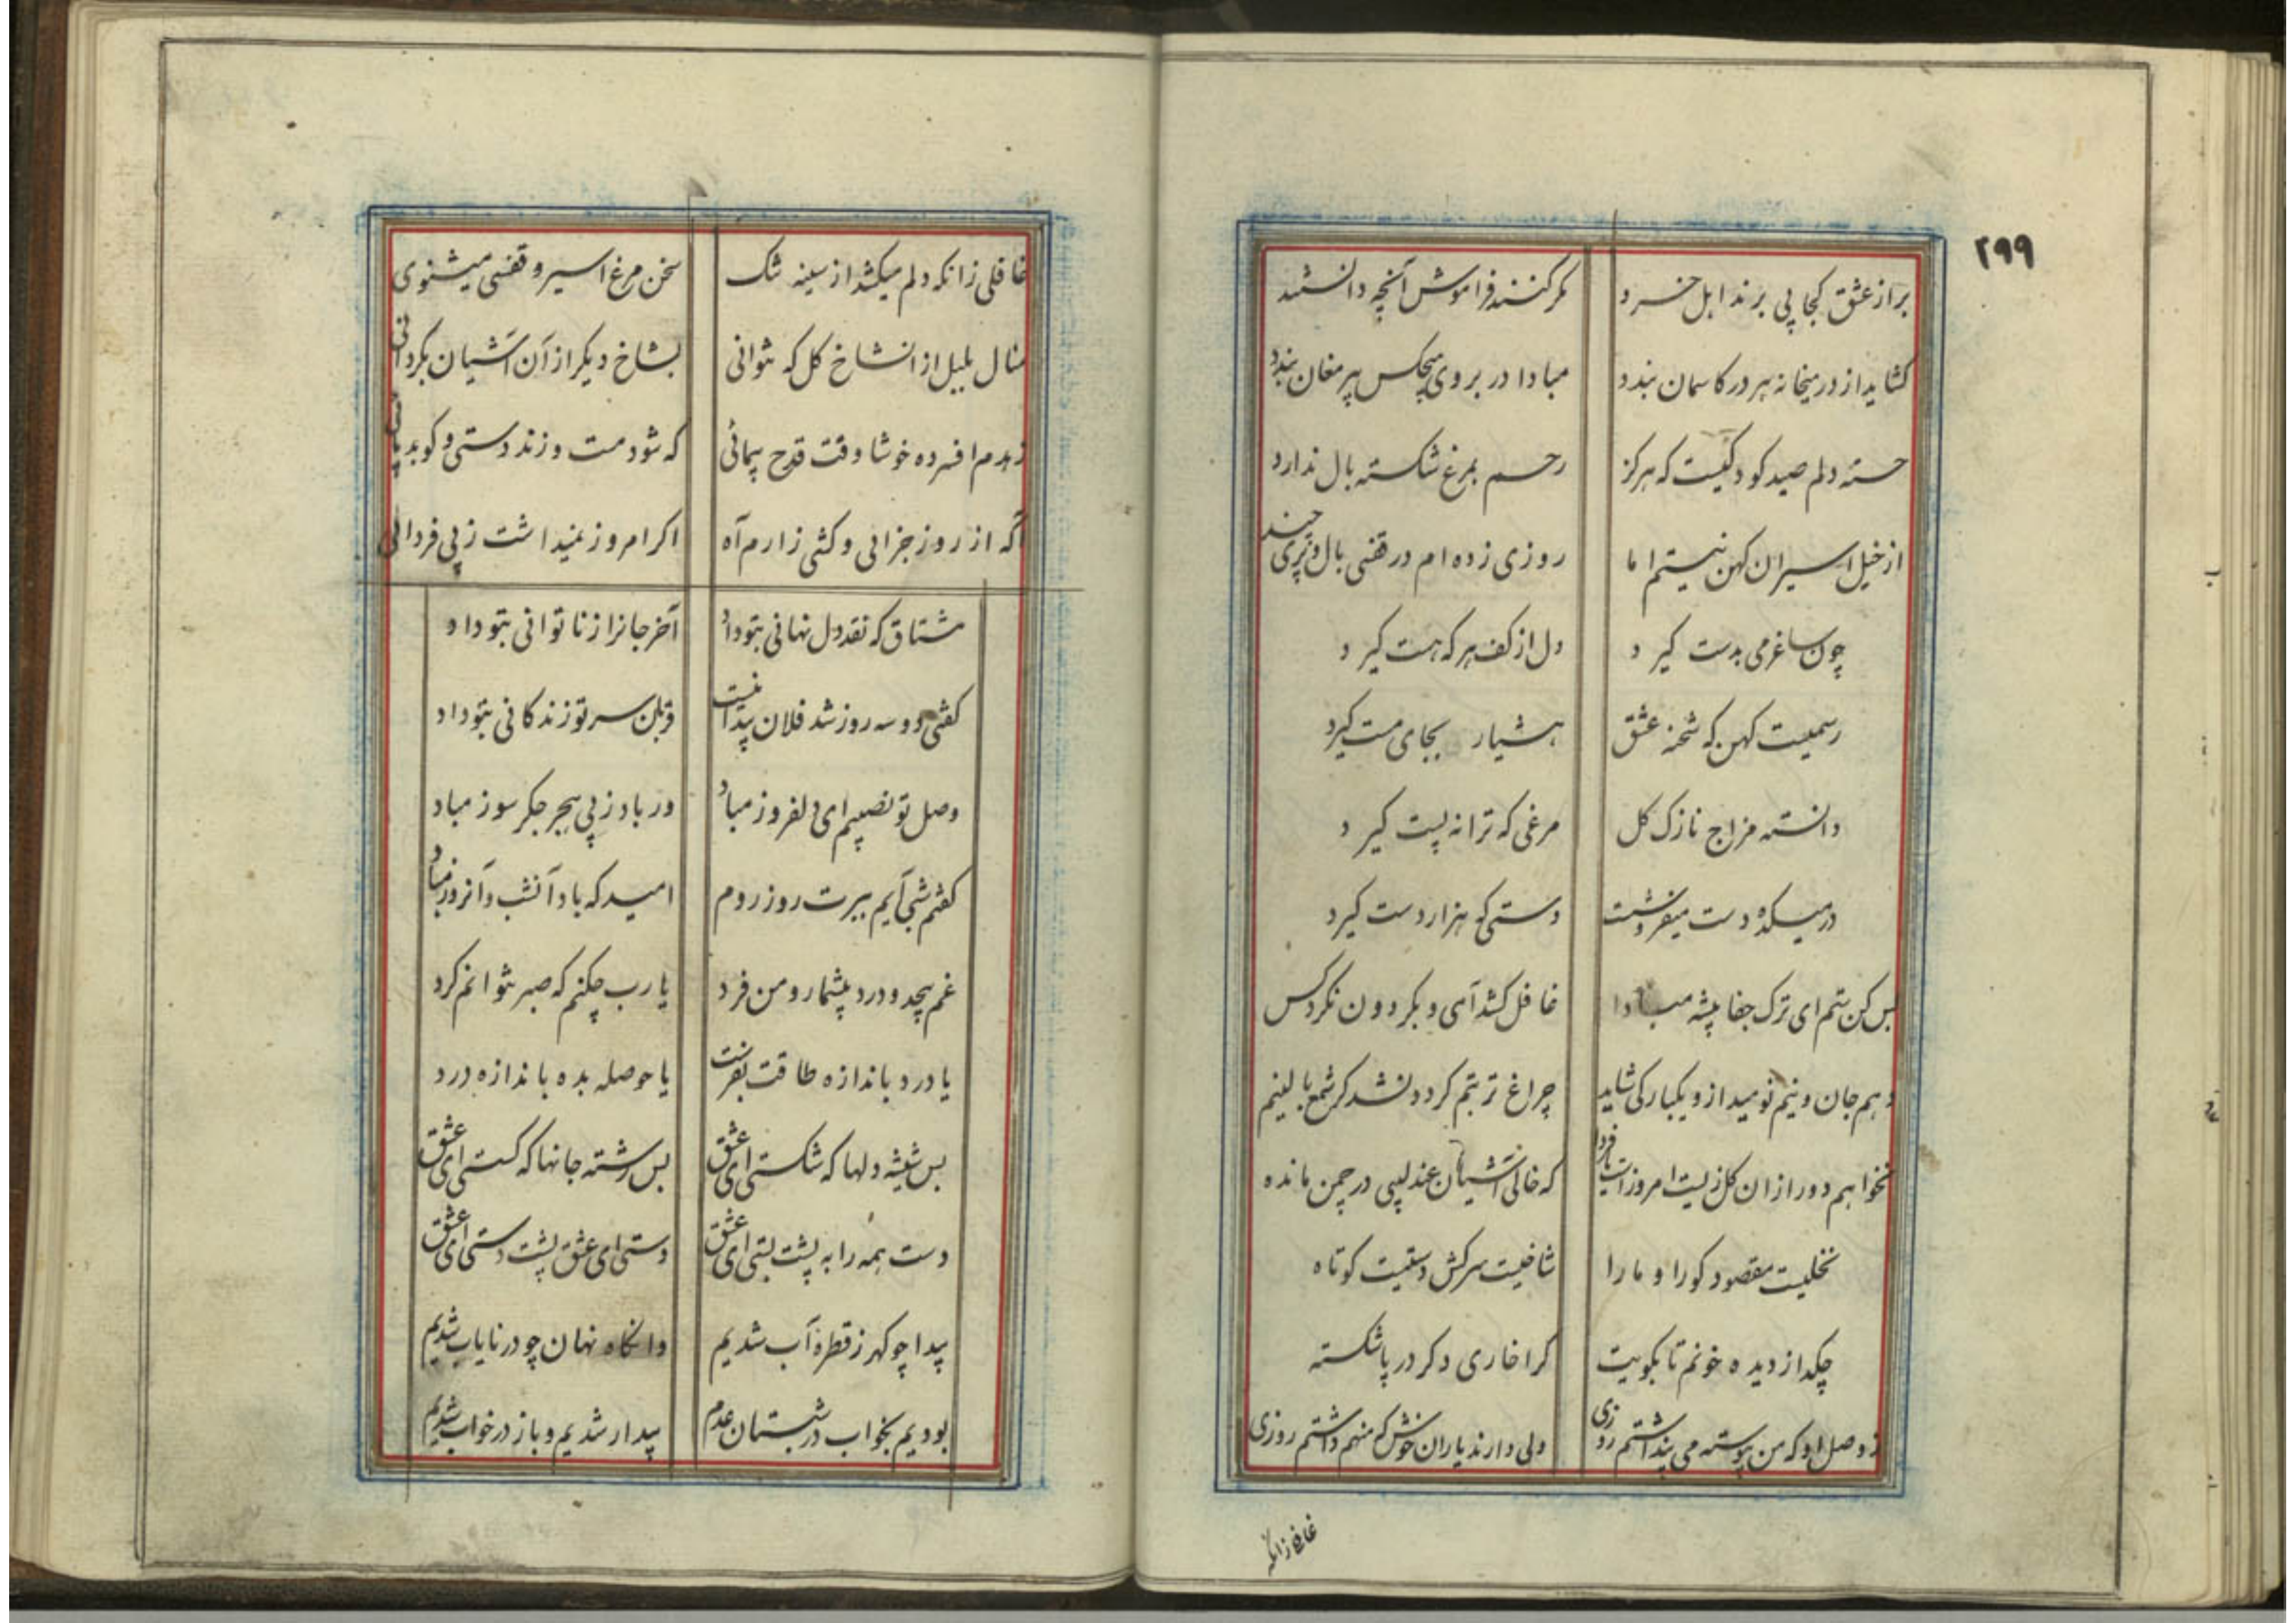 ۲۹۹
براز عشق کجا پی برند اهل خرد مکر کنند فراموش آنچه دانستند
کشاید از در میخانه هر در کاسمان بندد مبادا در بروی هیچکس پیر مغان بندد
خسته دلم صید کودکیست که هرکز رحم بمرغ شکسته بال ندارد
از خیل اسیران کهن نیستم اما روزی زده ام در قفسی بال و پری چند
چون ساغر می بدست کیرد دل از کف هر که هست کیرد
رسمیست کهن که شحنه عشق هشیار بجای مست کیرد
دانسته مزاج نازک کل مرغی که ترانه پست کیرد
در میکده دست میفروشست دستی که هزار دست کیرد
بس کن ستم ای ترک جفا پیشه مبادا غافل کشد آهی و بکردون نکرد کس
دهم جان و نیم نومید از و یکبارکی شاید چراغ تربتم کردد نشد کر شمع بالینم
نخواهم دور از ان کل زیست امروز است یا فردا که خالی آشیان عندلیبی در چمن مانده
نخلیست مقصود کورا و ما را شاخیست سرکش دستیست کوتاه
چکد از دیده خونم تا بکویت کرا خاری دکر در پا شکسته
ز وصل او که من پیوسته می پنداشتم روزی ولی دارند یاران خوش که منهم داشتم روزی
غافلی زانکه
غافلی زانکه دلم میکشد از سینه تنک سخن مرغ اسیر و قفسی میشنوی
منال بلبل از انشاخ کل که نتوانی بشاخ دیکر از آن آشیان بکردانی
زهدم افسرده خوشا وقت قدح پیمائی که شود مست و زند دستی و کوبد پائی
آکه از روز جزائی و کشی زارم آه اکر امروز نمیداشت ز پی فردائی
مشتاق که نقد دل نهانی بتو داد آخر جانرا ز ناتوانی بتو داد
کفتی دو سه روز شد فلان پیدا نیست قربان سر تو زندکانی بتو داد
وصل تو نصیبم ای دلفروز مباد ور باد ز پی هجر جکر سوز مباد
کفتم شبی آیم ببرت روز روم امید که باد آنشب و آنروز مباد
غم بیحد و درد بیشمار و من فرد یا رب چکنم که صبر نتوانم کرد
یا درد باندازه طاقت بفرست یا حوصله بده باندازه درد
بس شیشه دلها که شکستی ای عشق بس رشته جانها که کسستی ای عشق
دست همه را به پشت بستی ای عشق دستی ای عشق پشت دستی ای عشق
پیدا چو کهر ز قطره آب شدیم وانکاه نهان چو در نایاب شدیم
بودیم بخواب در شبستان عدم بیدار شدیم و باز در خواب شدیم